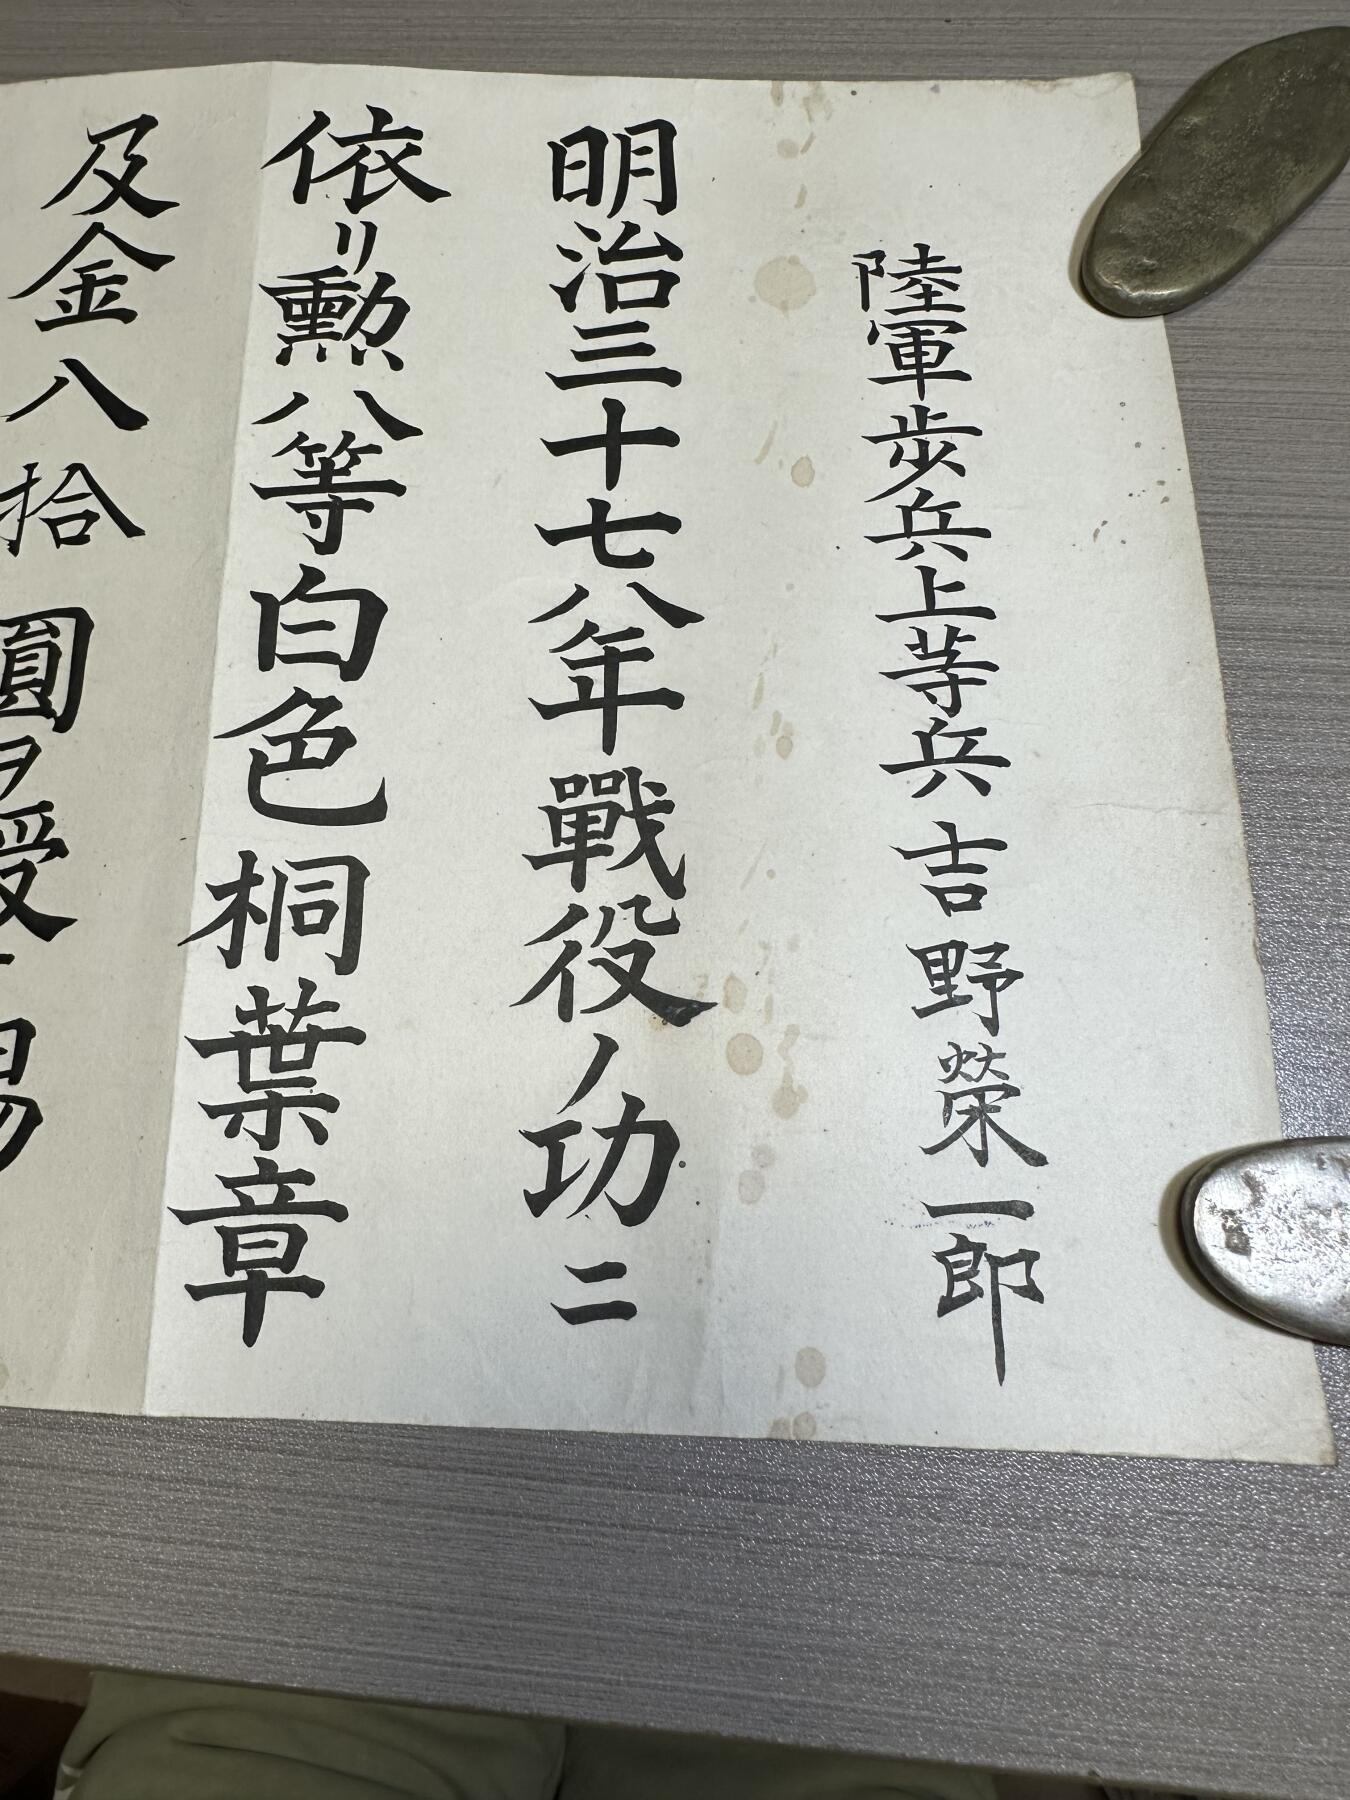 陸軍歩兵上等兵吉野榮一郎
明治三十七八年戰役ノ功ニ
依リ勲八等白色桐葉章
及金八拾圓ヲ授ケ賜